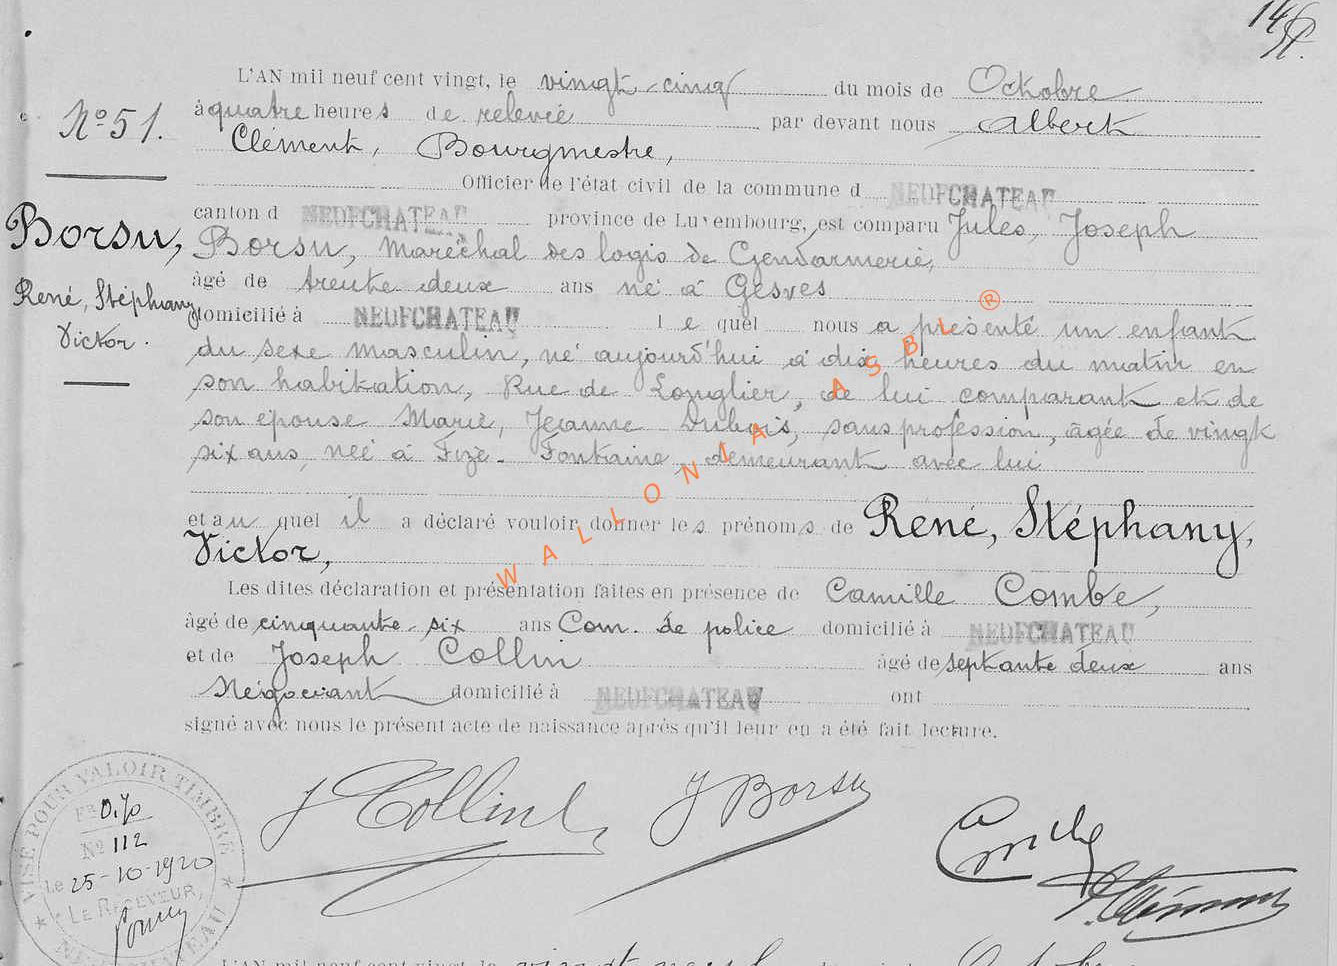 L'AN mil neuf cent vingt, le vingt-cinq du mois de Octobre
N° 51.
à quatre heures de relevée par devant nous Albert
Clément, Bourgmestre,
Officier de l'état civil de la commune d NEUFCHATEAU
canton d NEUFCHATEAU province de Luxembourg, est comparu Jules, Joseph
Borsu,
Borsu, Maréchal des logis de Gendarmerie,
âgé de trente deux ans né à Gesves
René, Stéphany
Victor.
domicilié à NEUFCHATEAU lequel nous a présenté un enfant
du sexe masculin, né aujourd'hui à dix heures du matin en
son habitation, Rue de Longlier, de lui comparant et de
son épouse Marie, Jeanne Dubois, sans profession, âgée de vingt
six ans, née à Fize-Fontaine, demeurant avec lui
et au quel il a déclaré vouloir donner les prénoms de René, Stéphany,
Victor,
Les dites déclaration et présentation faites en présence de Camille Combe,
âgé de cinquante-six ans Com. de police domicilié à NEUFCHATEAU
et de Joseph Collin âgé de septante deux ans
Négociant domicilié à NEUFCHATEAU ont
signé avec nous le présent acte de naissance après qu'il leur en a été fait lecture.
J Collin J Borsu
A. Clément
VISÉ POUR VALOIR TIMBRE
Fr 0.70
N° 112
Le 25-10-1920
LE RECEVEUR,
NEUFCHATEAU
WALLONIA ASBL ®
L'AN mil neuf cent vingt, le vingt neuf du mois de Octobre